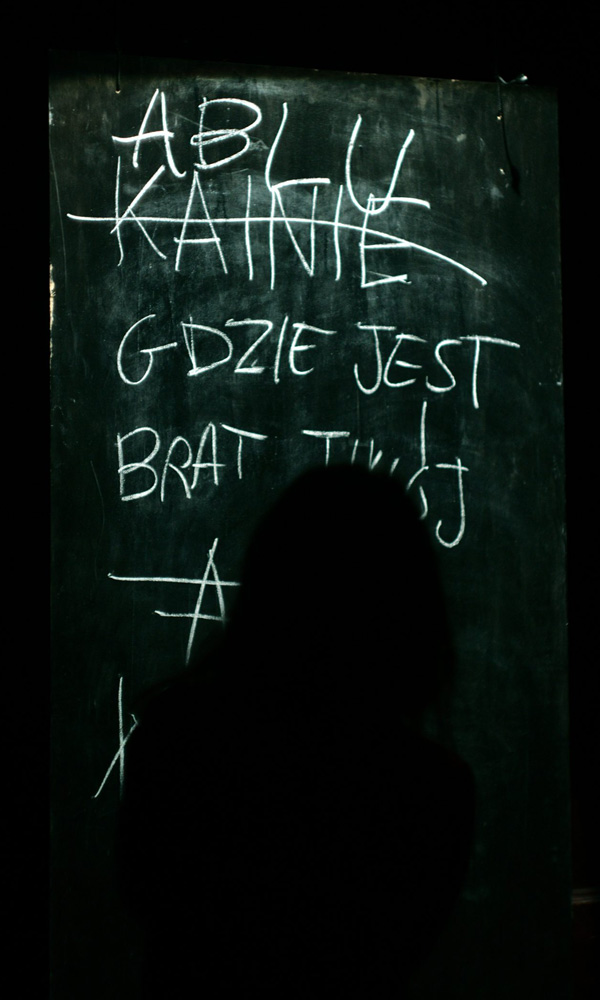 ABLU
KAINIE
GDZIE JEST
BRAT TWÓJ
A